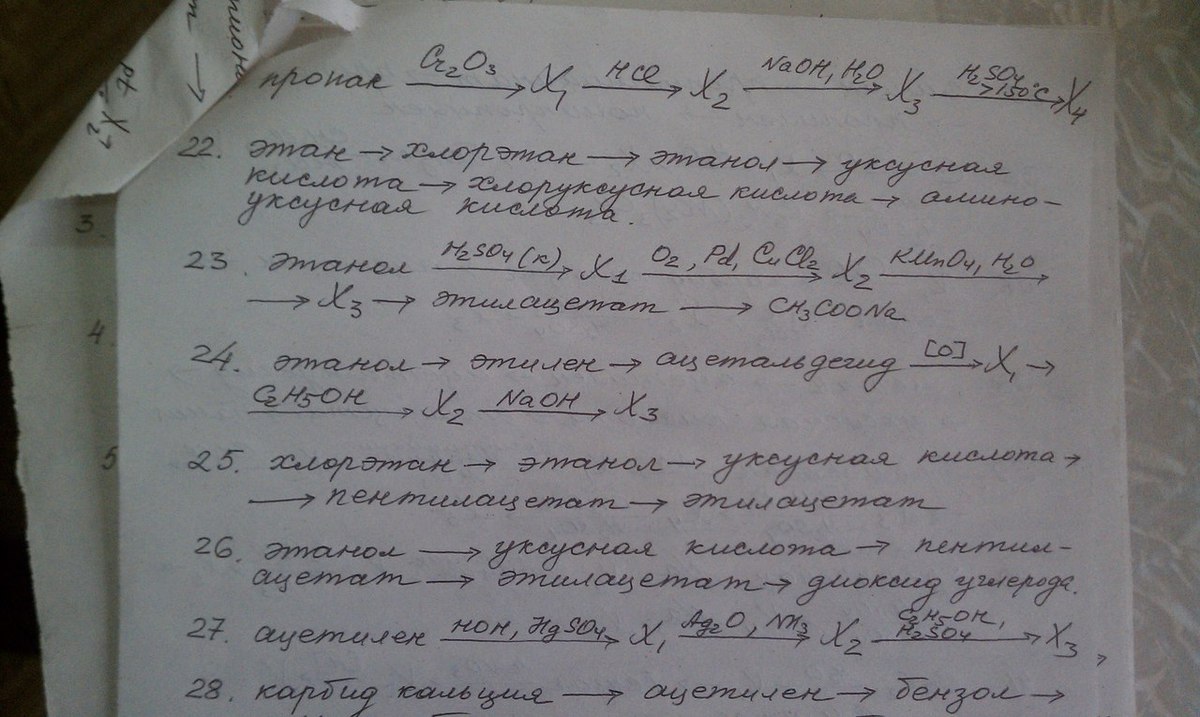 пропан Cr₂O₃ → X₁ HCl → X₂ NaOH, H₂O → X₃ H₂SO₄ >150°C → X₄
22. этан → хлорэтан → этанол → уксусная
кислота → хлоруксусная кислота → амино-
уксусная кислота.
23. этанол H₂SO₄(к) → X₁ O₂, Pd, CuCl₂ → X₂ KMnO₄, H₂O →
→ X₃ → этилацетат → CH₃COONa
24. этанол → этилен → ацетальдегид [O] → X₁ →
C₂H₅OH → X₂ NaOH → X₃
25. хлорэтан → этанол → уксусная кислота →
→ пентилацетат → этилацетат
26. этанол → уксусная кислота → пентил-
ацетат → этилацетат → диоксид углерода.
27. ацетилен HOH, HgSO₄ → X₁ Ag₂O, NH₃ → X₂ C₂H₅OH, H₂SO₄ → X₃,
28. карбид кальция → ацетилен → бензол →
3.
4.
5
X₂